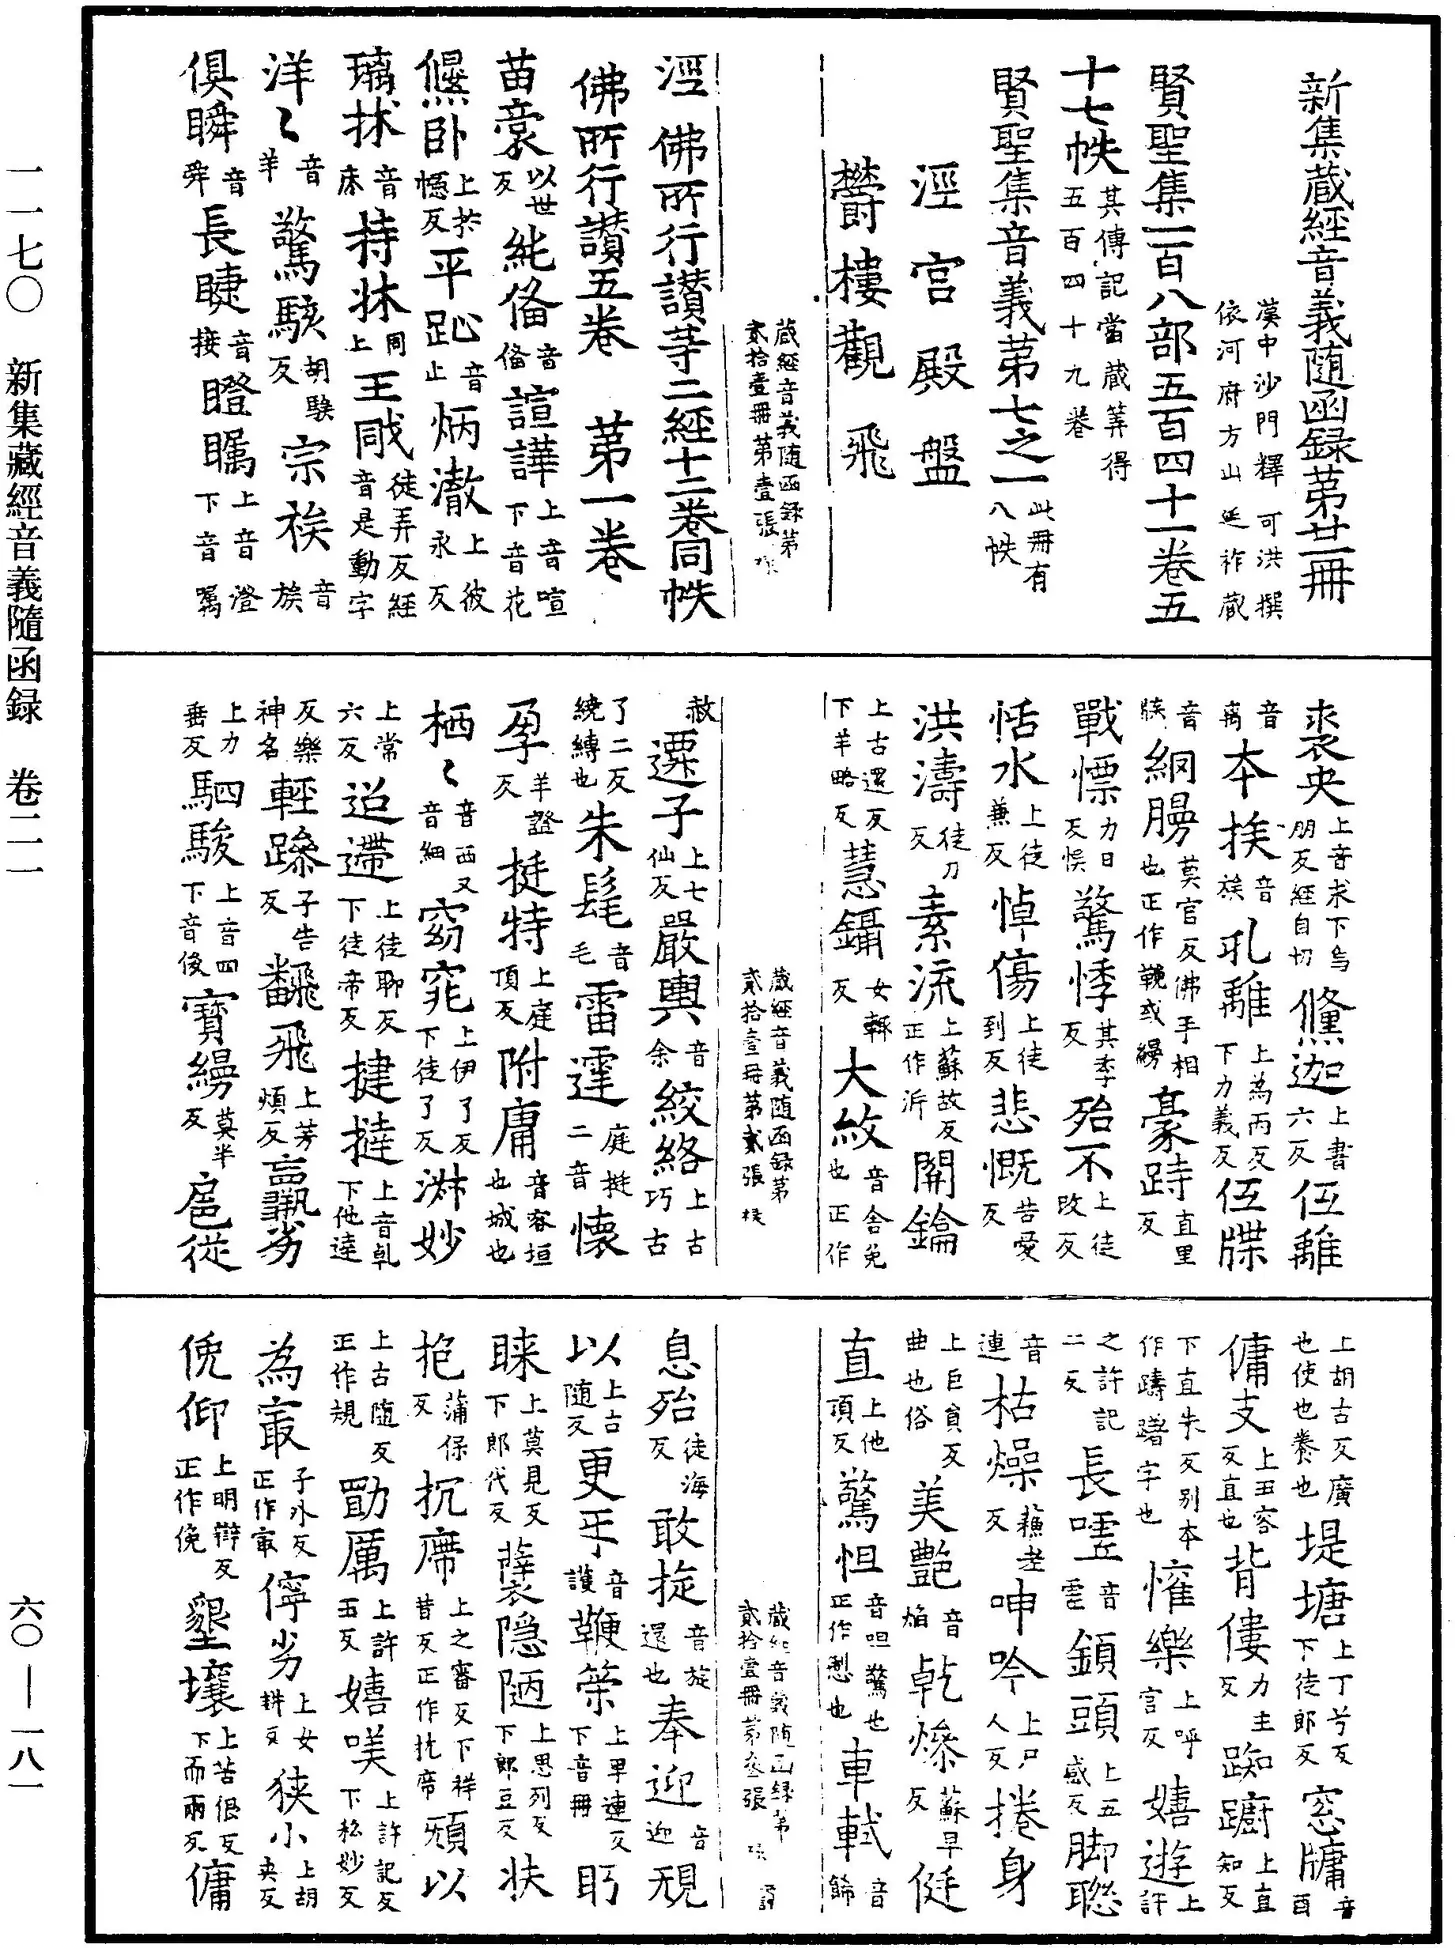 新集藏經音義隨函録第廿一冊
漢中沙門釋可洪撰
依河府方山延祚藏
賢聖集一百八部五百四十一卷五
十七帙其傳記當藏等得五百四十九卷
賢聖集音義第七之一此冊有八帙
涇宫殿盤
欝樓觀飛
藏經音義随函録第
貳拾壹冊第壹張
涇佛所行讃等二經十二卷同帙
佛所行讃五卷 第一卷
苗裔以世反純俻音俻諠譁上音喧下音花
偃卧上於憶反平趾音止炳澈上彼永反
璃牀音床持牀同上王戙徒弄反經音是動字
洋〻音羊驚駭胡騃反宗族音族
俱瞬音舜長睫音接瞪矚上音澄下音囑
裘央上音求下烏朋反經自切儵迦上書六反伍離
音离本族音族乳離上為丙反下力義反伍牒
音牒網膓莫官反佛手相也正作鞔或縵豪跱直里反
戰慄力日反悮驚悸其季反殆不上徒改反
恬水上徒兼反悼傷上徒到反悲慨苦愛反
洪濤徒刀反素流上蘇故反正作泝開鑰
上古還反下羊略反慧鑷女輒反大紋音舍免也正作
藏經音義随函録第
貳拾壹冊第貳張
赦遷子上七仙反嚴輿音余絞絡上古巧古
了二反繞縛也朱髦音毛雷霆庭挺二音懷
孕羊證反挺特上庭頂反附庸音容垣也城也
栖〻音西又音細窈窕上伊了反下徒了反淋妙
上常六反迢遰上徒聊反下徒帝反揵撻上音乹下他達
反樂神名輕躁子告反翻飛上芳煩反羸劣
上力垂反駟駿上音四下音俊寶縵莫半反扈從
上胡古反廣也使也養也堤塘上丁兮反下徒郎反窓牖音酉
傭支上丑容反直也背僂力主反踟蹰上直知反
下直朱反別本作躊躇字也懽樂上呼官反嬉遊上許
之許記二反長嘘音虚鎖頭上五感反脚聮
音連枯燥蘓老反呻吟上尸人反捲身
上巨員反曲也俗美艷音焰乾燥蘇早反侹
直上他頂反驚怛音呾驚也正作㤠也車軾音餙
藏經音義随函録第
貳拾壹冊第叁張
息殆徒海反敢旋音旋還也奉迎音迎規
以上古随反更乎音護鞭策上卑連反下音冊眄
睞上莫見反下郎代反褻隱陋上思列反下郎豆反扶
抱蒲保反抗席上之審反下祥昔反正作扰席頑以
上古随反正作規勖厲上許玉反嬉𡁠上許記反下私妙反
為冣子外反正作㝡儜劣上女耕反狭小上胡夹反
俛仰上明辯反正作俛墾壤上苦佷反下而兩反傭
一一七〇 新集藏經音義隨函録 卷二一 六〇—一八一